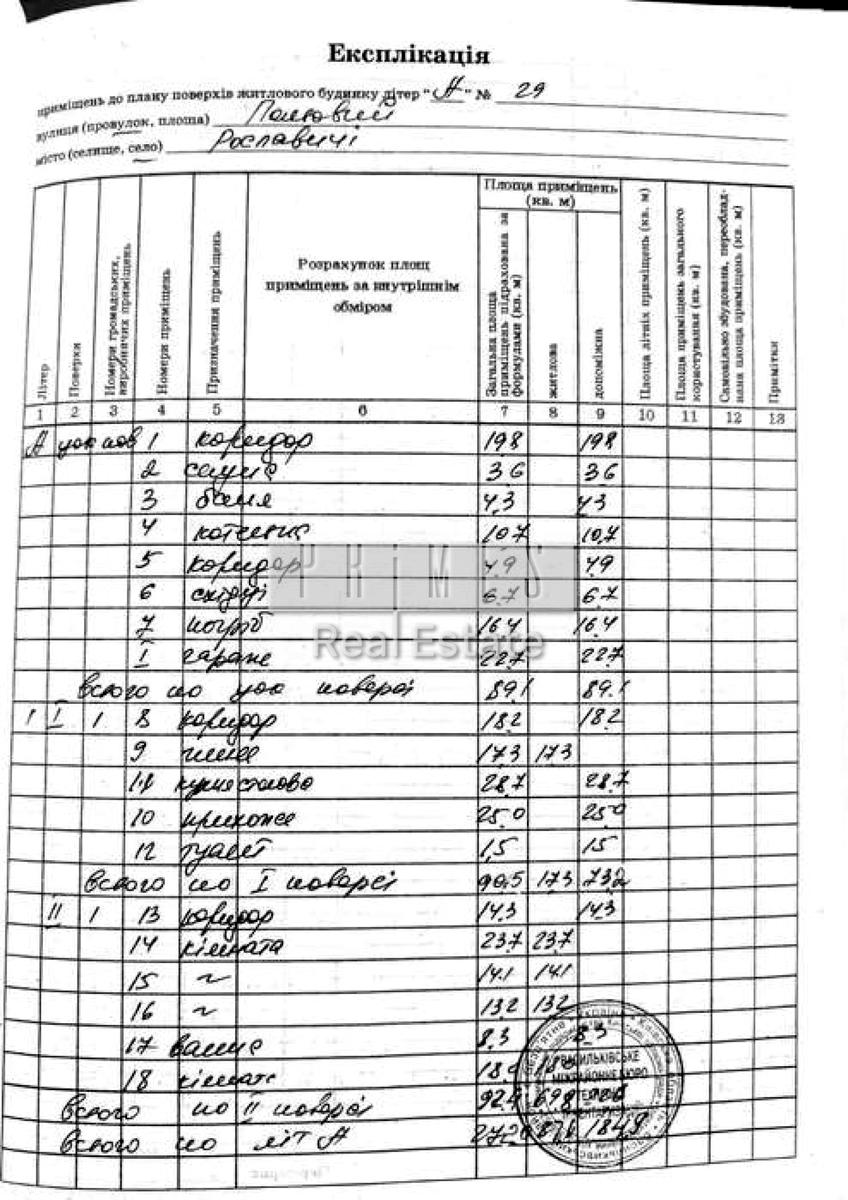 Експлікація
приміщень до плану поверхів житлового будинку літер "А" № 29
вулиця (провулок, площа) Польовий
місто (селище, село) Рославичі
Літер
Поверхи
Номери громадських, виробничих приміщень
Номери приміщень
Призначення приміщень
Розрахунок площ
приміщень за внутрішнім
обміром
Площа приміщень
(кв. м)
Загальна площа приміщень підрахована за формулами (кв. м)
житлова
допоміжна
Площа літніх приміщень (кв. м)
Площа приміщень загального користування (кв. м)
Самовільно збудована, переобладнана площа приміщень (кв. м)
Примітки
1 2 3 4 5 6 7 8 9 10 11 12 13
А цок пов 1 коридор 19.8 19.8
2 сауна 3.6 3.6
3 баня 4.3 4.3
4 котельня 10.7 10.7
5 коридор 4.9 4.9
6 східці 6.7 6.7
7 погріб 16.4 16.4
I гараж 22.7 22.7
всього по цок поверсі 89.1 89.1
1 I 1 8 коридор 18.2 18.2
9 17.3 17.3
11 кухня столова 28.7 28.7
10 прихожа 25.0 25.0
12 туалет 1,5 1.5
всього по I поверсі 90.5 17.3 73.2
II 1 13 коридор 14.3 14.3
14 кімната 23.7 23.7
15 ~ 14.1 14.1
16 ~ 13.2 13.2
17 ванна 8.3 8.3
18 кімната
всього по II поверсі 92.4 69.8
всього по літ А
PRIMES
Real Estate
ВАСИЛЬКІВСЬКЕ
МІЖРАЙОННЕ БЮРО